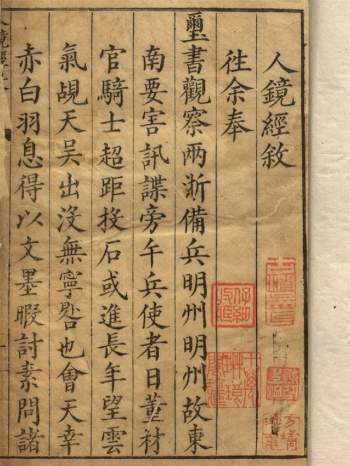 人鏡經敘
徃余奉
璽書觀察兩浙備兵明州明州故東
南要害訊諜旁午兵使者日蓳材
官騎士超距投石或進長年望雲
氣覘天吳出沒無寧晷也會天幸
赤白羽息得以文墨暇討素問諸